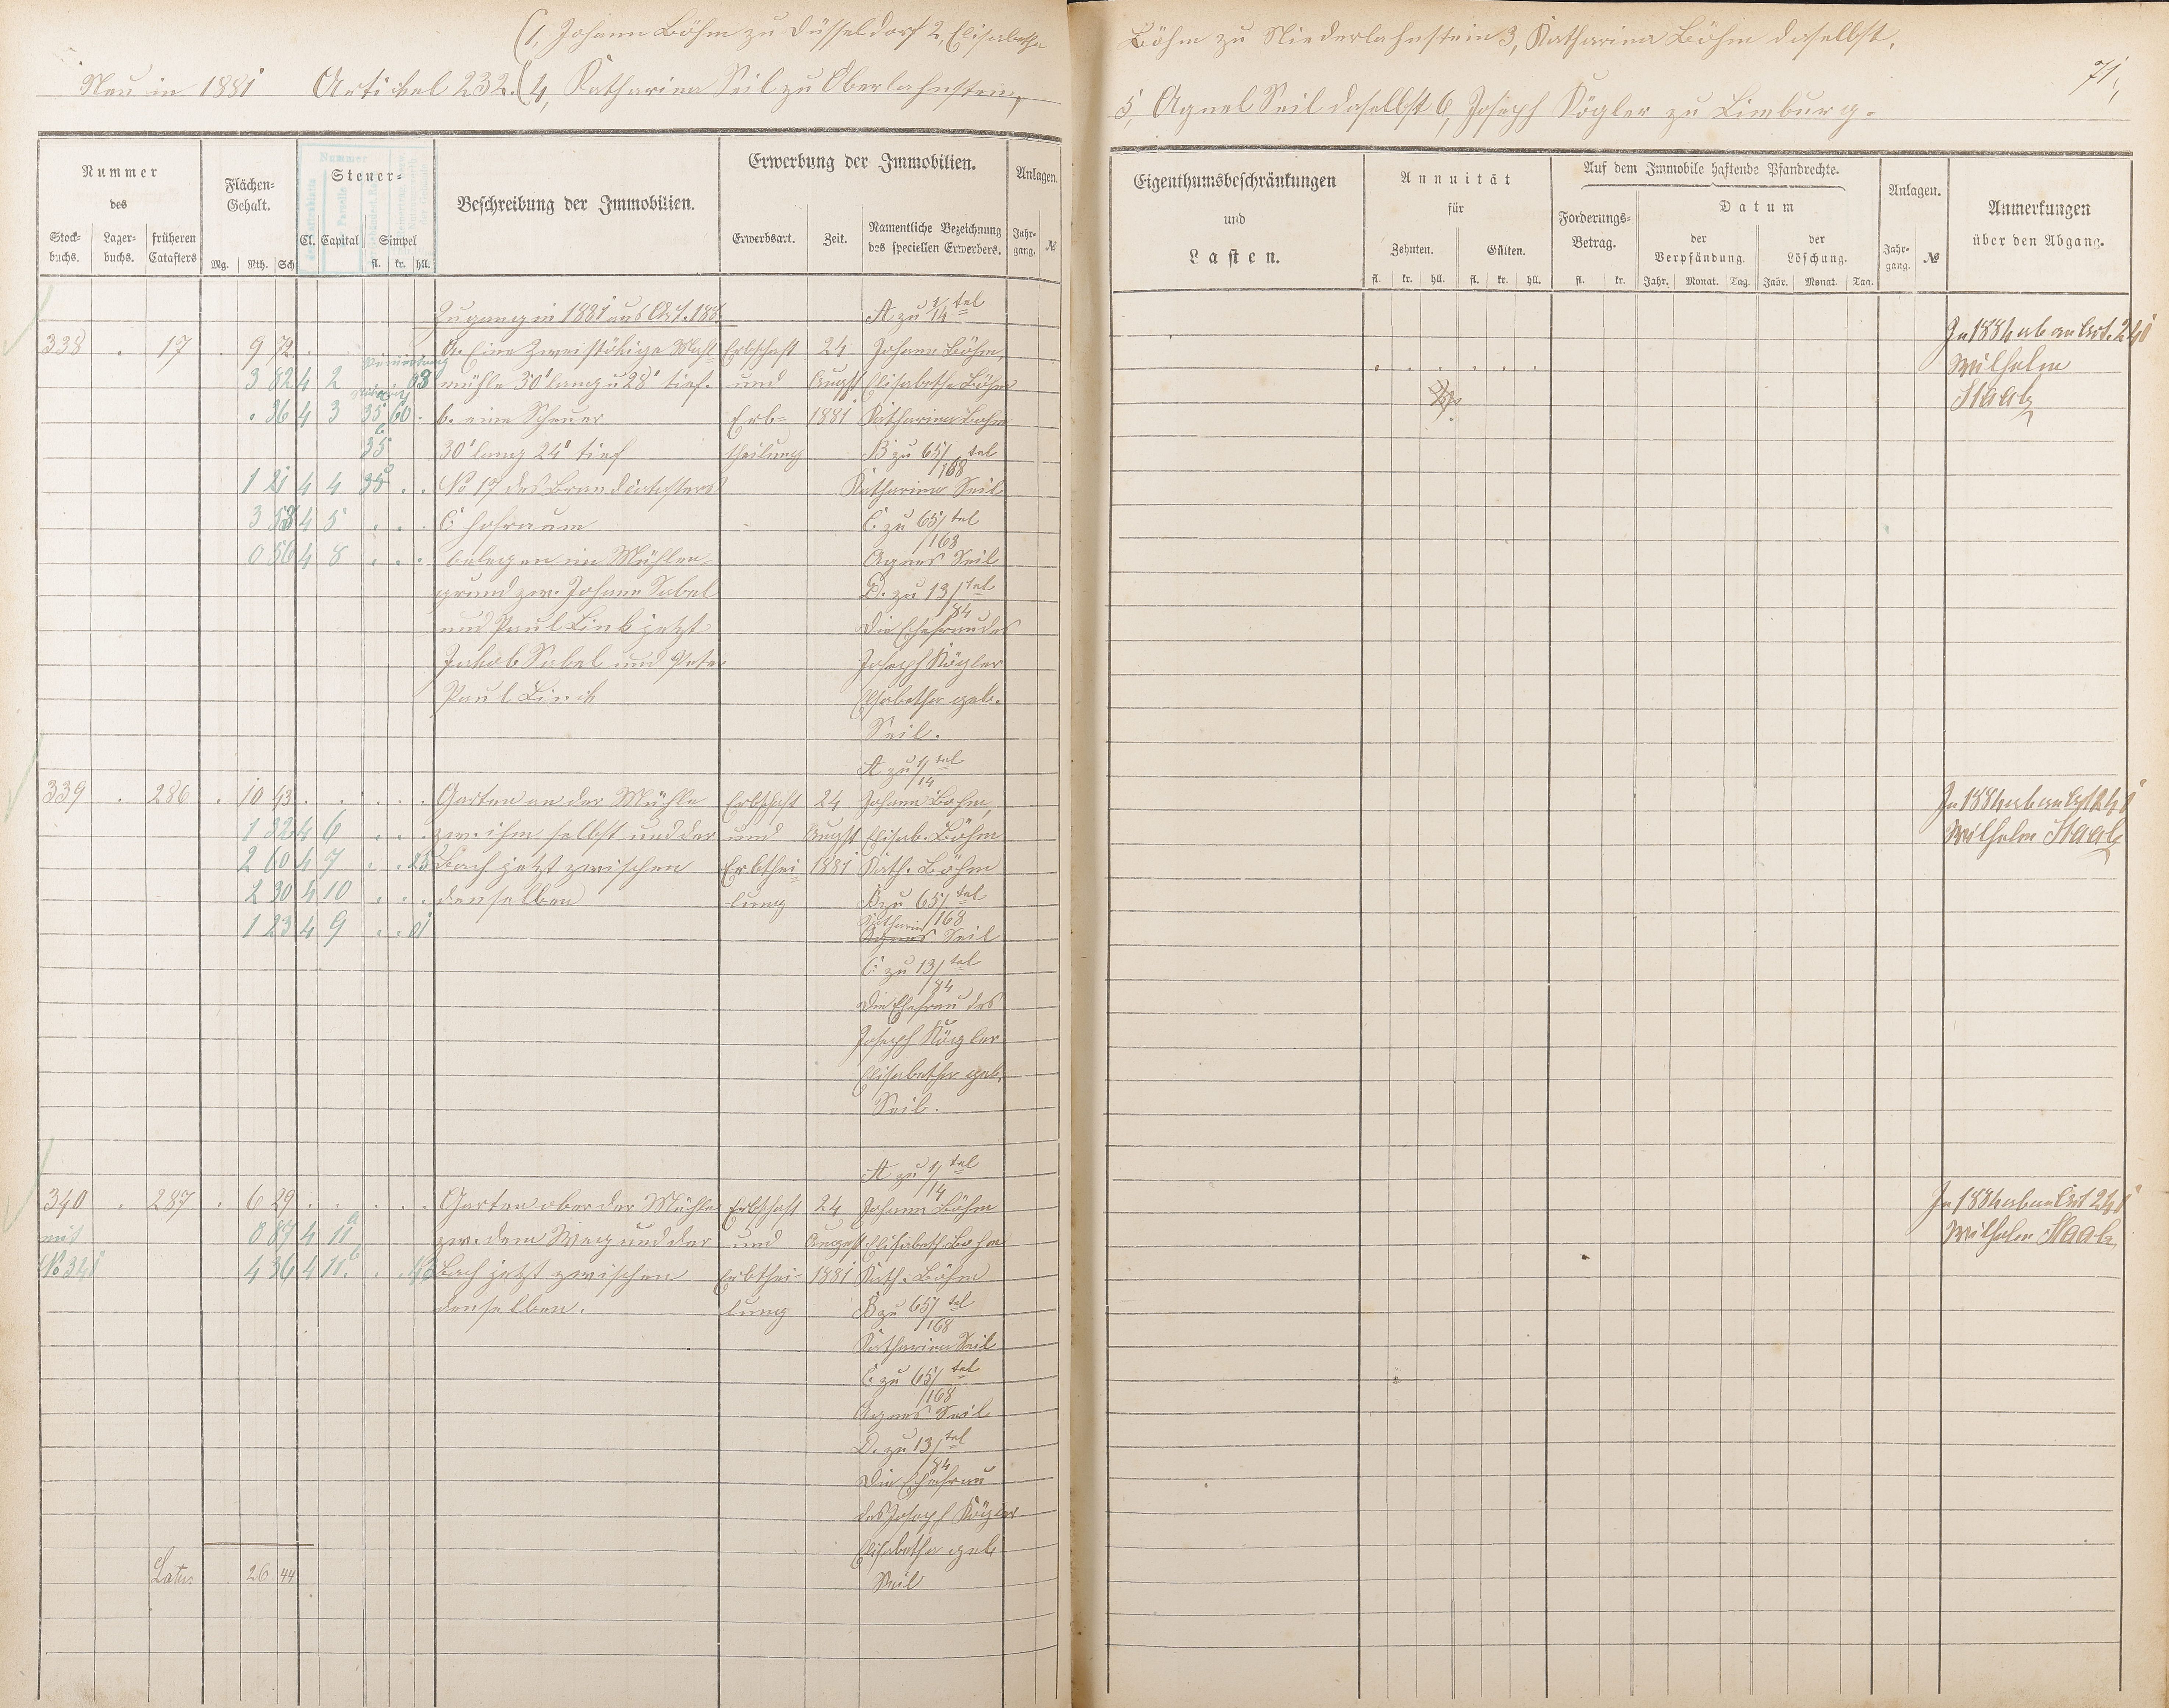 (1, Johann Böhm zu Düsseldorf 2, Elisabetha
Neu in 1881 Artikel 232. (4, Katharina Seil zu Oberlahnstein,
Nummer
des
Stock-
buchs.
Lager-
buchs.
früheren
Catasters
Flächen-
Gehalt.
Mg. Rth. Sch
Steuer-
Cl. Capital Simpel
fl. kr. hll.
Beschreibung der Immobilien.
Erwerbung der Immobilien.
Erwerbsart.
Zeit.
Namentliche Bezeichnung
des speciellen Erwerbers.
Anlagen.
Jahr-
gang.
№
Zugang in 1881 aus Art. 188.
A zu 1/14 tel
338 . 17 . 9 72 . A. Eine zweistökige Mahl Erbschaft 24 Johann Böhm,
3 82 4 2 98 mühle 30' lang u 28' tief. und Augst Elisabetha Böhm
. 36 4 3 35 60 . b. eine Scheuer Erb- 1881 Katharina Böhm
35 30' lang 24' tief theilung B zu 65/168 tel
1 21 4 4 35 . . No 17 des Brandcatasters Katharina Seil
3 58 4 5 . . . C Hofraum C. zu 65/168 tel
0 56 4 8 . . . belegen im Mühlen Agnes Seil
grund zw. Johann Sabel D. zu 13/84 tel
und Paul Link jetzt Die Ehefrau des
Jakob Sabel und Peter Joseph Kögler
Paul Linck Elisabetha geb.
Seil.
A zu 1/14 tel
339 . 286 . 10 43 . . . . . Garten an der Mühle Erbschaft 24 Johann Böhm,
1 32 4 6 . . . zw. ihm selbst und der und Augst Elisab. Böhm
2 60 4 7 . . 25 Bach jetzt zwischen Erbthei- 1881 Kath. Böhm
2 30 4 10 . . . denselben lung B zu 65/168 tel
1 23 4 9 . . 01 Katharina
Agnes Seil
C. zu 13/84 tel
Die Ehefrau des
Joseph Kögler
Elisabetha geb.
Seil.
A zu 1/14 tel
340 . 287 . 6 29 . . . . . Garten ober der Mühle Erbschaft 24 Johann Böhm
mit 0 87 4 11 a zw. dem Weg und der und August Elisabeth Böhm
No 341 4 36 4 11. b . . Bach jetzt zwischen Erbthei- 1881 Kath. Böhm
denselben. lung B zu 65/168 tel
Katharina Seil
C. zu 65/168 tel
Agnes Seil
D. zu 13/84 tel
Die Ehefrau
des Joseph Kögler
Elisabetha geb
Seil
Latus 26 44
Böhm zu Niederlahnstein 3, Katharina Böhm daselbst,
71,
5, Agnes Seil daselbst 6, Joseph Kögler zu Limburg.
Eigenthumsbeschränkungen
und
Lasten.
Annuität
für
Zehnten.
Gülten.
fl. kr. hll. fl. kr. hll.
Auf dem Immobile haftende Pfandrechte.
Forderungs-
Betrag.
fl. kr.
Datum
der
Verpfändung.
der
Löschung.
Jahr. Monat. Tag. Jahr. Monat. Tag.
Anlagen.
Jahr-
gang.
№
Anmerkungen
über den Abgang.
In 1884 ab an Art. 241
Wilhelm
Staab
In 1884 ab an Art 241
Wilhelm Staab
In 1884 ab an Art 241
Wilhelm Staab